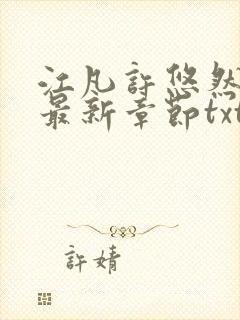 江凡許悠然
最新章節txt
許婧